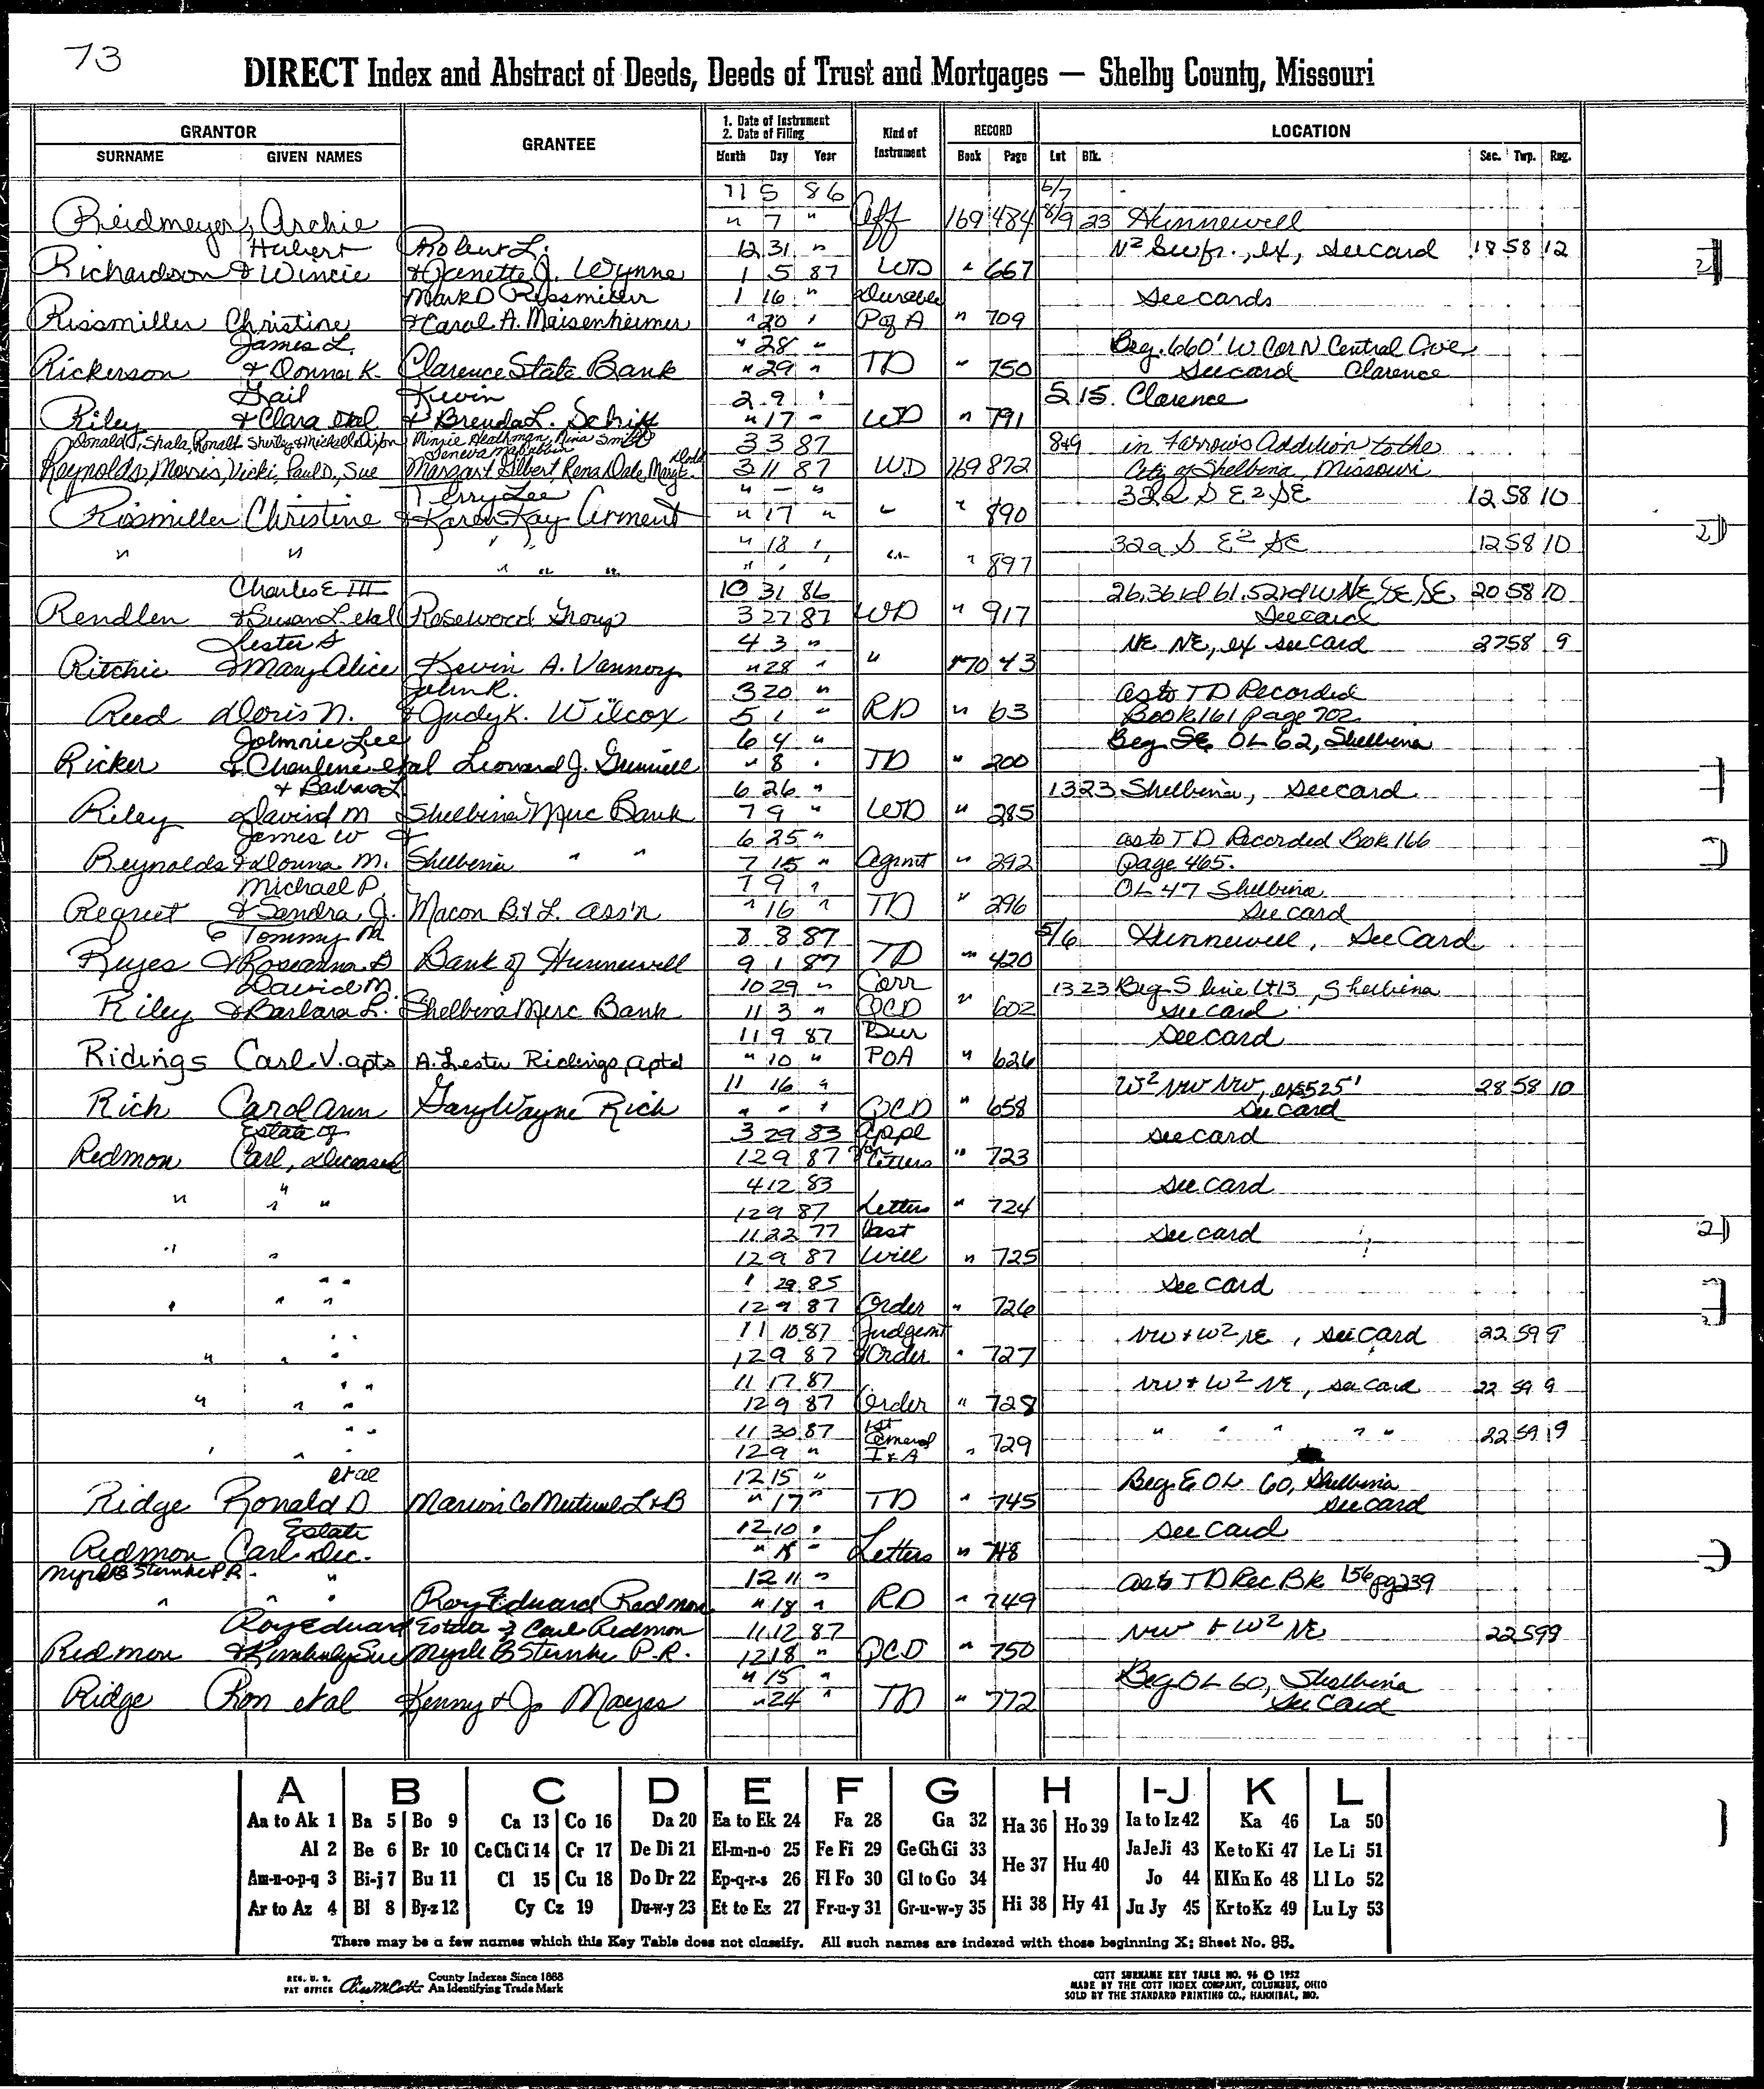 73
DIRECT Index and Abstract of Deeds, Deeds of Trust and Mortgages — Shelby County, Missouri
GRANTOR GRANTEE 1. Date of Instrument 2. Date of Filing Kind of Instrument RECORD LOCATION
SURNAME GIVEN NAMES Month Day Year Book Page Lot Blk. Sec. Twp. Rng.
11 5 86 6/7
Reidmeyer, Archie " 7 " Aff 169 484 8/9 23 Hunnewell
Hubert Robert L. 12 31 " N² Swfr., ex, see card 18 58 12
Richardson & Wincie & Janette J. Wynne 1 5 87 WD " 667
Mark D Rissmiller 1 16 " Durable see cards
Rissmiller Christine & Carol A. Maisenheimer " 20 " P of A " 709
James L. " 28 " Beg. 660' W Cor N Central Ave
Rickerson & Donna K. Clarence State Bank " 29 " TD " 750 see card Clarence
Gail Kevin 2 9 " 5 15 Clarence
Riley & Clara etal & Brenda L. Schiff " 17 " WD " 791
Donald J, Shala, Ronald Sherley & Michell Dixon Minnie Heathman, Nina Smith 3 3 87 8&9 in Farrow's Addition to the
Reynolds, Morris, Vicki, Paul D., Sue Margaret Gilbert, Rena Dale, 3 11 87 WD 169 872 City of Shelbina, Missouri
Terry Lee " – " 32a S E² SE 12 58 10
Rissmiller Christine & Karen Kay Arment " 17 " " " 890
" 18 " 32a S E² SE 12 58 10
" " " " " " " " " " 897
Charles E III 10 31 86 26.36rd 61.52rd W NE, SE, SE, 20 58 10
Rendlen & Susan L. etal Rosewood Group 3 27 87 WD " 917 see card
Lester S 4 3 " NE NE, ex see card 27 58 9
Ritchie & Mary Alice Kevin A. Vannoy " 28 " " 170 43
John R. 3 20 " as to TD Recorded
Reed Doris N. & Judy K. Wilcox 5 1 " RD " 63 Book 161 page 702
Johnnie Lee 6 4 " Beg SE OL 62, Shelbina
Ricker & Charlene etal Leonard J. " 8 " TD " 200
& Barbara L. 6 26 " 13 23 Shelbina, see card
Riley David M Shelbina Merc Bank 7 9 " WD " 285
James W 6 25 " as to TD Recorded Book 166
Reynolds & Donna M. Shelbina " " 7 15 " Agmt " 292 page 465.
Michael P. 7 9 " OL 47 Shelbina
& Sandra J. Macon B. & L. Ass'n " 16 " TD " 296 see card
Tommy M 8 8 87 5/6 Hunnewell, See Card
Reyes & Roseanna D Bank of Hunnewell 9 1 87 TD " 420
David M. 10 29 " Corr 13 23 Beg S line Lt 13, Shelbina
Riley & Barbara L. Shelbina Merc Bank 11 3 " QCD " 602 see card
11 9 87 Dur see card
Ridings Carl V. apts A. Lester Ridings, aptd " 10 " POA " 626
11 16 " W² NW NW, ex S 525' 28 58 10
Rich Carol Ann Gary Wayne Rich " " " QCD " 658 see card
Estate of 3 29 83 Appl see card
Redmon Carl, Deceased 12 9 87 for Letters " 723
4 12 83 see card
" " " 12 9 87 Letters " 724
11 22 77 Last see card
" " 12 9 87 Will " 725
1 29 85 see card
" " " 12 9 87 Order " 726
11 10 87 Judgemt NW & W² NE, see card 22 59 9
" " " 12 9 87 & Order " 727
11 17 87 NW & W² NE, see card 22 59 9
" " " 12 9 87 Order " 728
11 30 87 1st " " " " " 22 59 9
" " " 12 9 " I & A " 729
etal 12 15 " Beg E OL 60, Shelbina
Ridge Ronald D Marion Co Mutual L & B " 17 " TD " 745 see card
Estate 12 10 " see card
Redmon Carl Dec. " 18 " Letters " 748
Myrle B Sternke P.R. " 12 11 " as to TD Rec Bk 156 pg 239
" " " Roy Eduard Redmon " 18 " RD " 749
Roy Eduard Estate of Carl Redmon 11 12 87 NW & W² NE 22 59 9
Redmon & Kimberly Sue Myrle B Sternke P.R. 12 18 " QCD " 750
" 15 " Beg OL 60, Shelbina
Ridge Ron etal Kenny & Jo Mayes " 24 " TD " 772 see card
A B C D E F G H I-J K L
Aa to Ak 1 Ba 5 Bo 9 Ca 13 Co 16 Da 20 Ea to Ek 24 Fa 28 Ga 32 Ha 36 Ho 39 Ia to Iz 42 Ka 46 La 50
Al 2 Be 6 Br 10 Ce Ch Ci 14 Cr 17 De Di 21 El-m-n-o 25 Fe Fi 29 Ge Gh Gi 33 He 37 Hu 40 Ja Je Ji 43 Ke to Ki 47 Le Li 51
Am-n-o-p-q 3 Bi-j 7 Bu 11 Cl 15 Cu 18 Do Dr 22 Ep-q-r-s 26 Fl Fo 30 Gl to Go 34 Jo 44 Kl Kn Ko 48 Ll Lo 52
Ar to Az 4 Bl 8 By-z 12 Cy Cz 19 Du-w-y 23 Et to Ez 27 Fr-u-y 31 Gr-u-w-y 35 Hi 38 Hy 41 Ju Jy 45 Kr to Kz 49 Lu Ly 53
There may be a few names which this Key Table does not classify. All such names are indexed with those beginning X; Sheet No. 95.
REG. U. S. PAT OFFICE County Indexes Since 1888 An Identifying Trade Mark
COTT SURNAME KEY TABLE NO. 96 © 1952
MADE BY THE COTT INDEX COMPANY, COLUMBUS, OHIO
SOLD BY THE STANDARD PRINTING CO., HANNIBAL, MO.